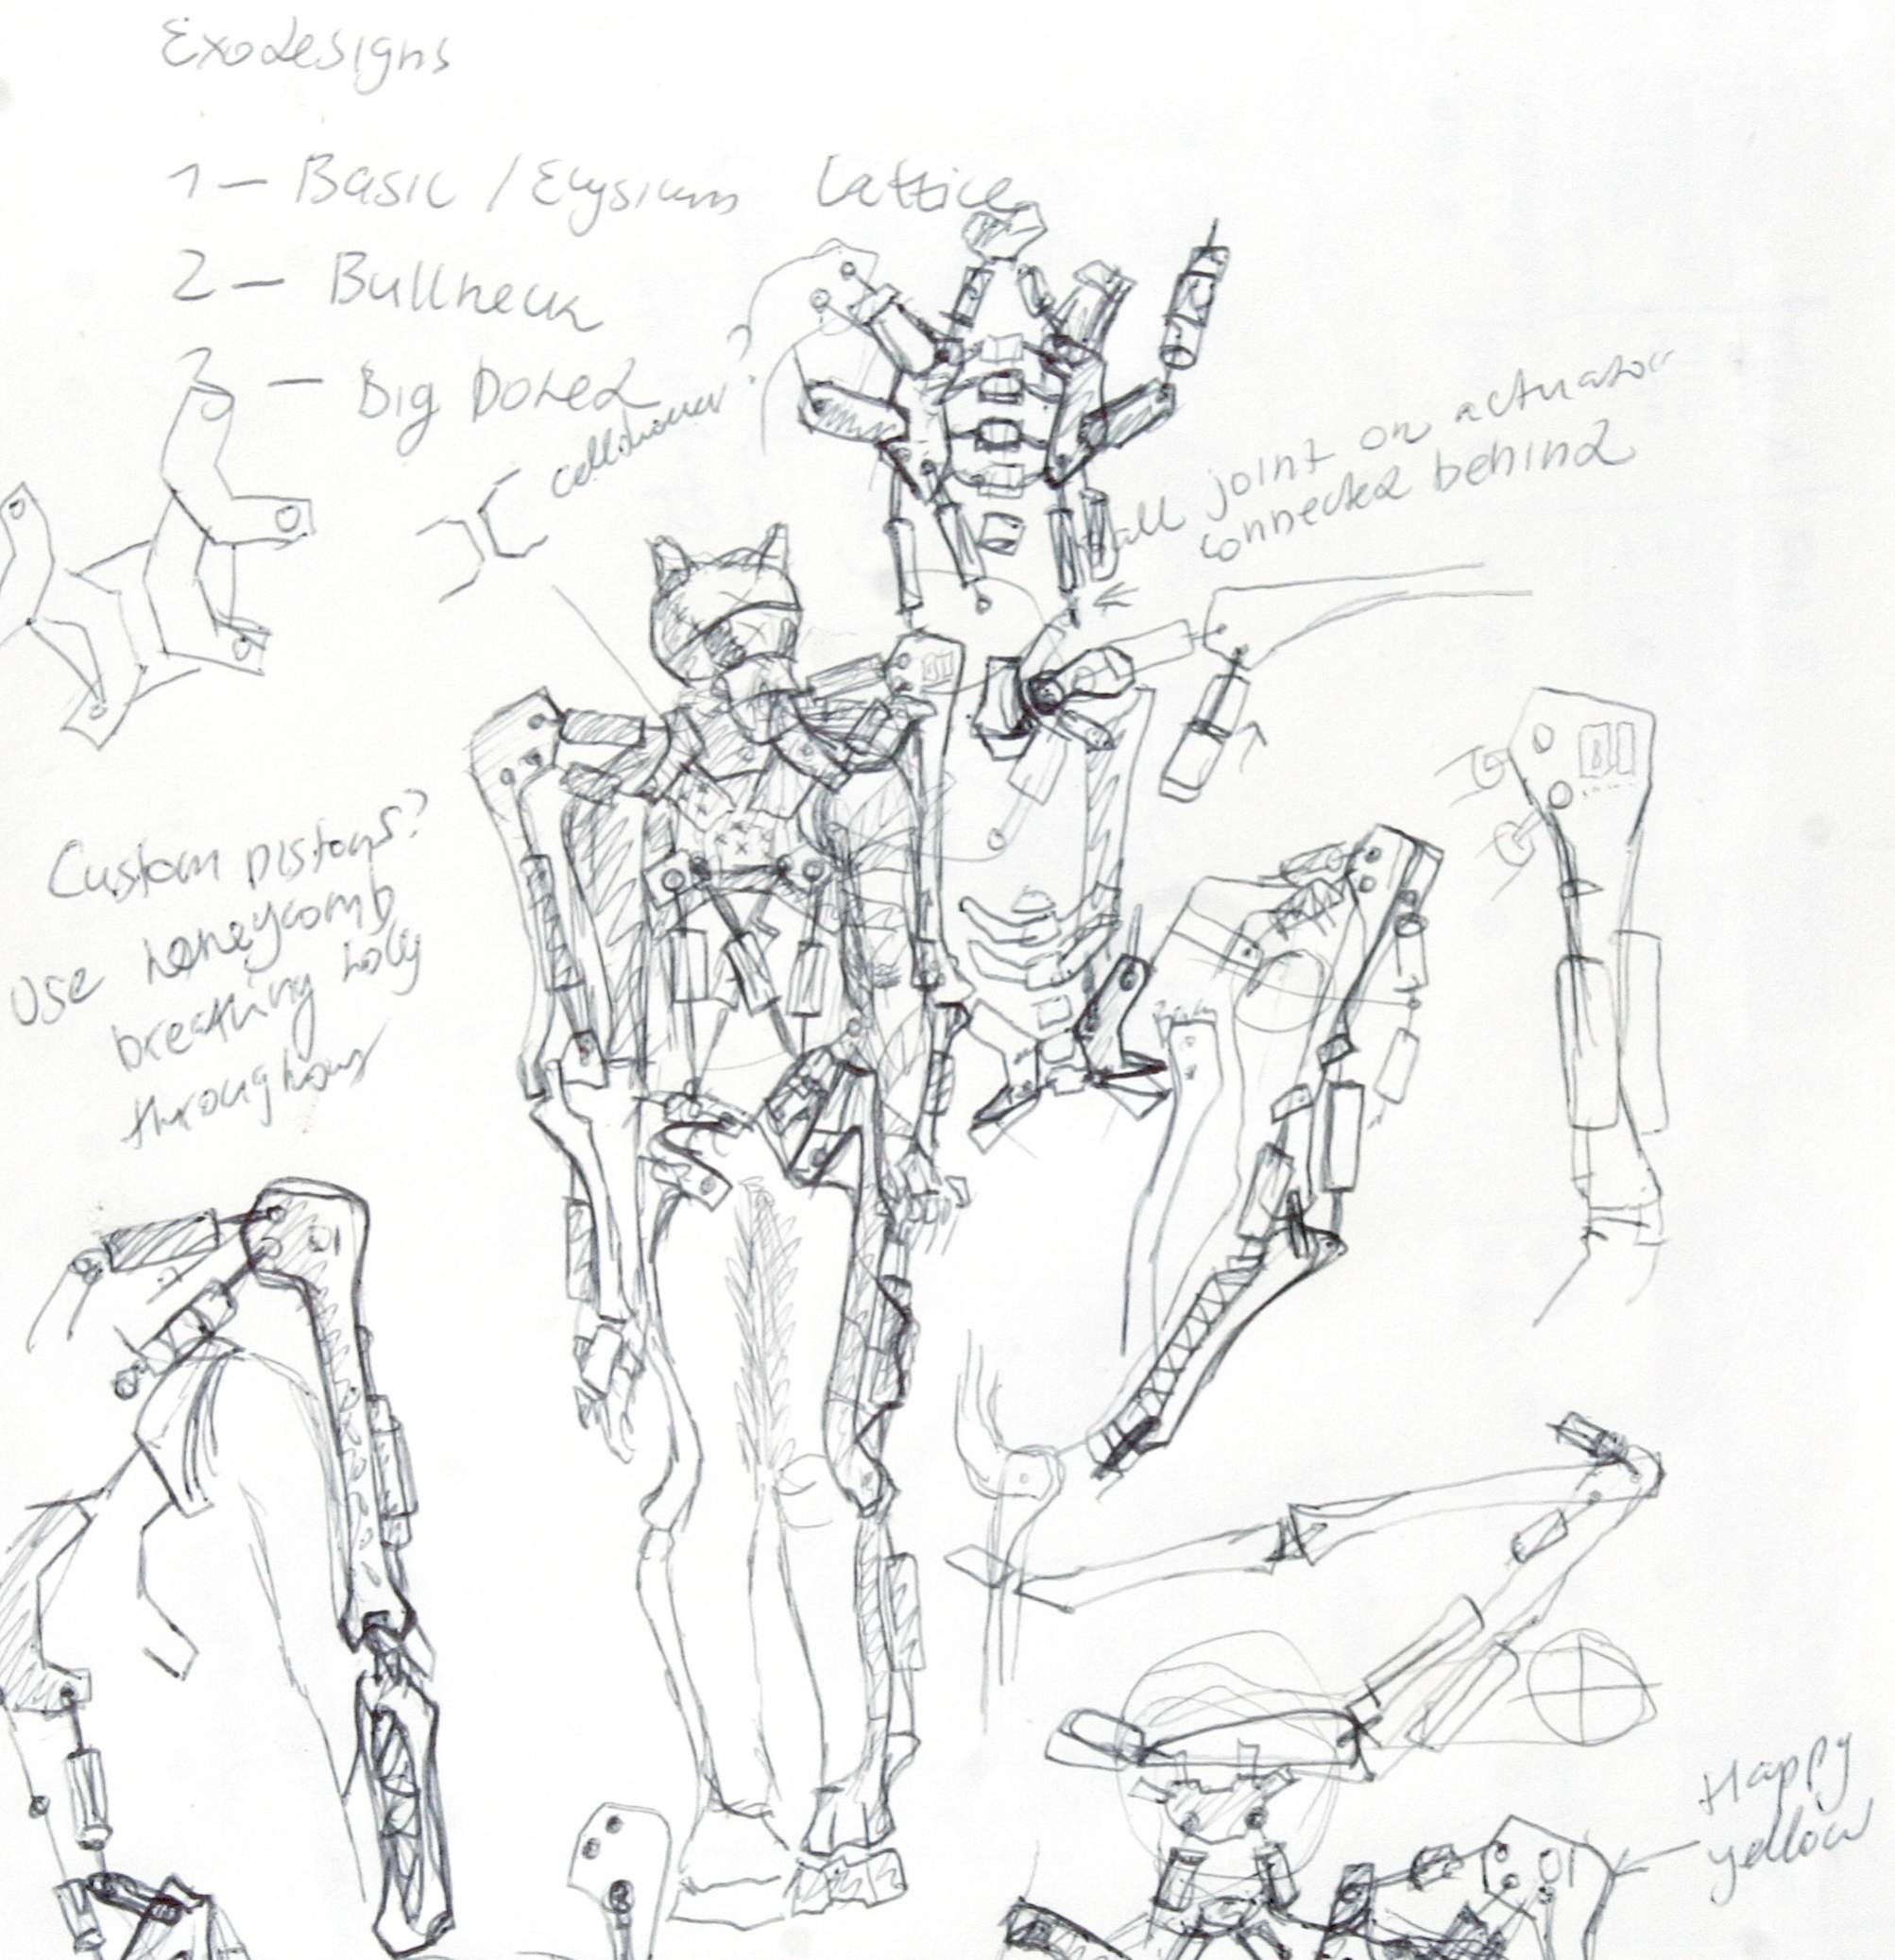 Exodesigns
1 – Basic / Elysium Lattice
2 – Bullneck
3 – Big Dozed
?
joint on actuator
connected behind
Custom pistons?
Use honeycomb
breathing holy
throughout
Happy
yellow